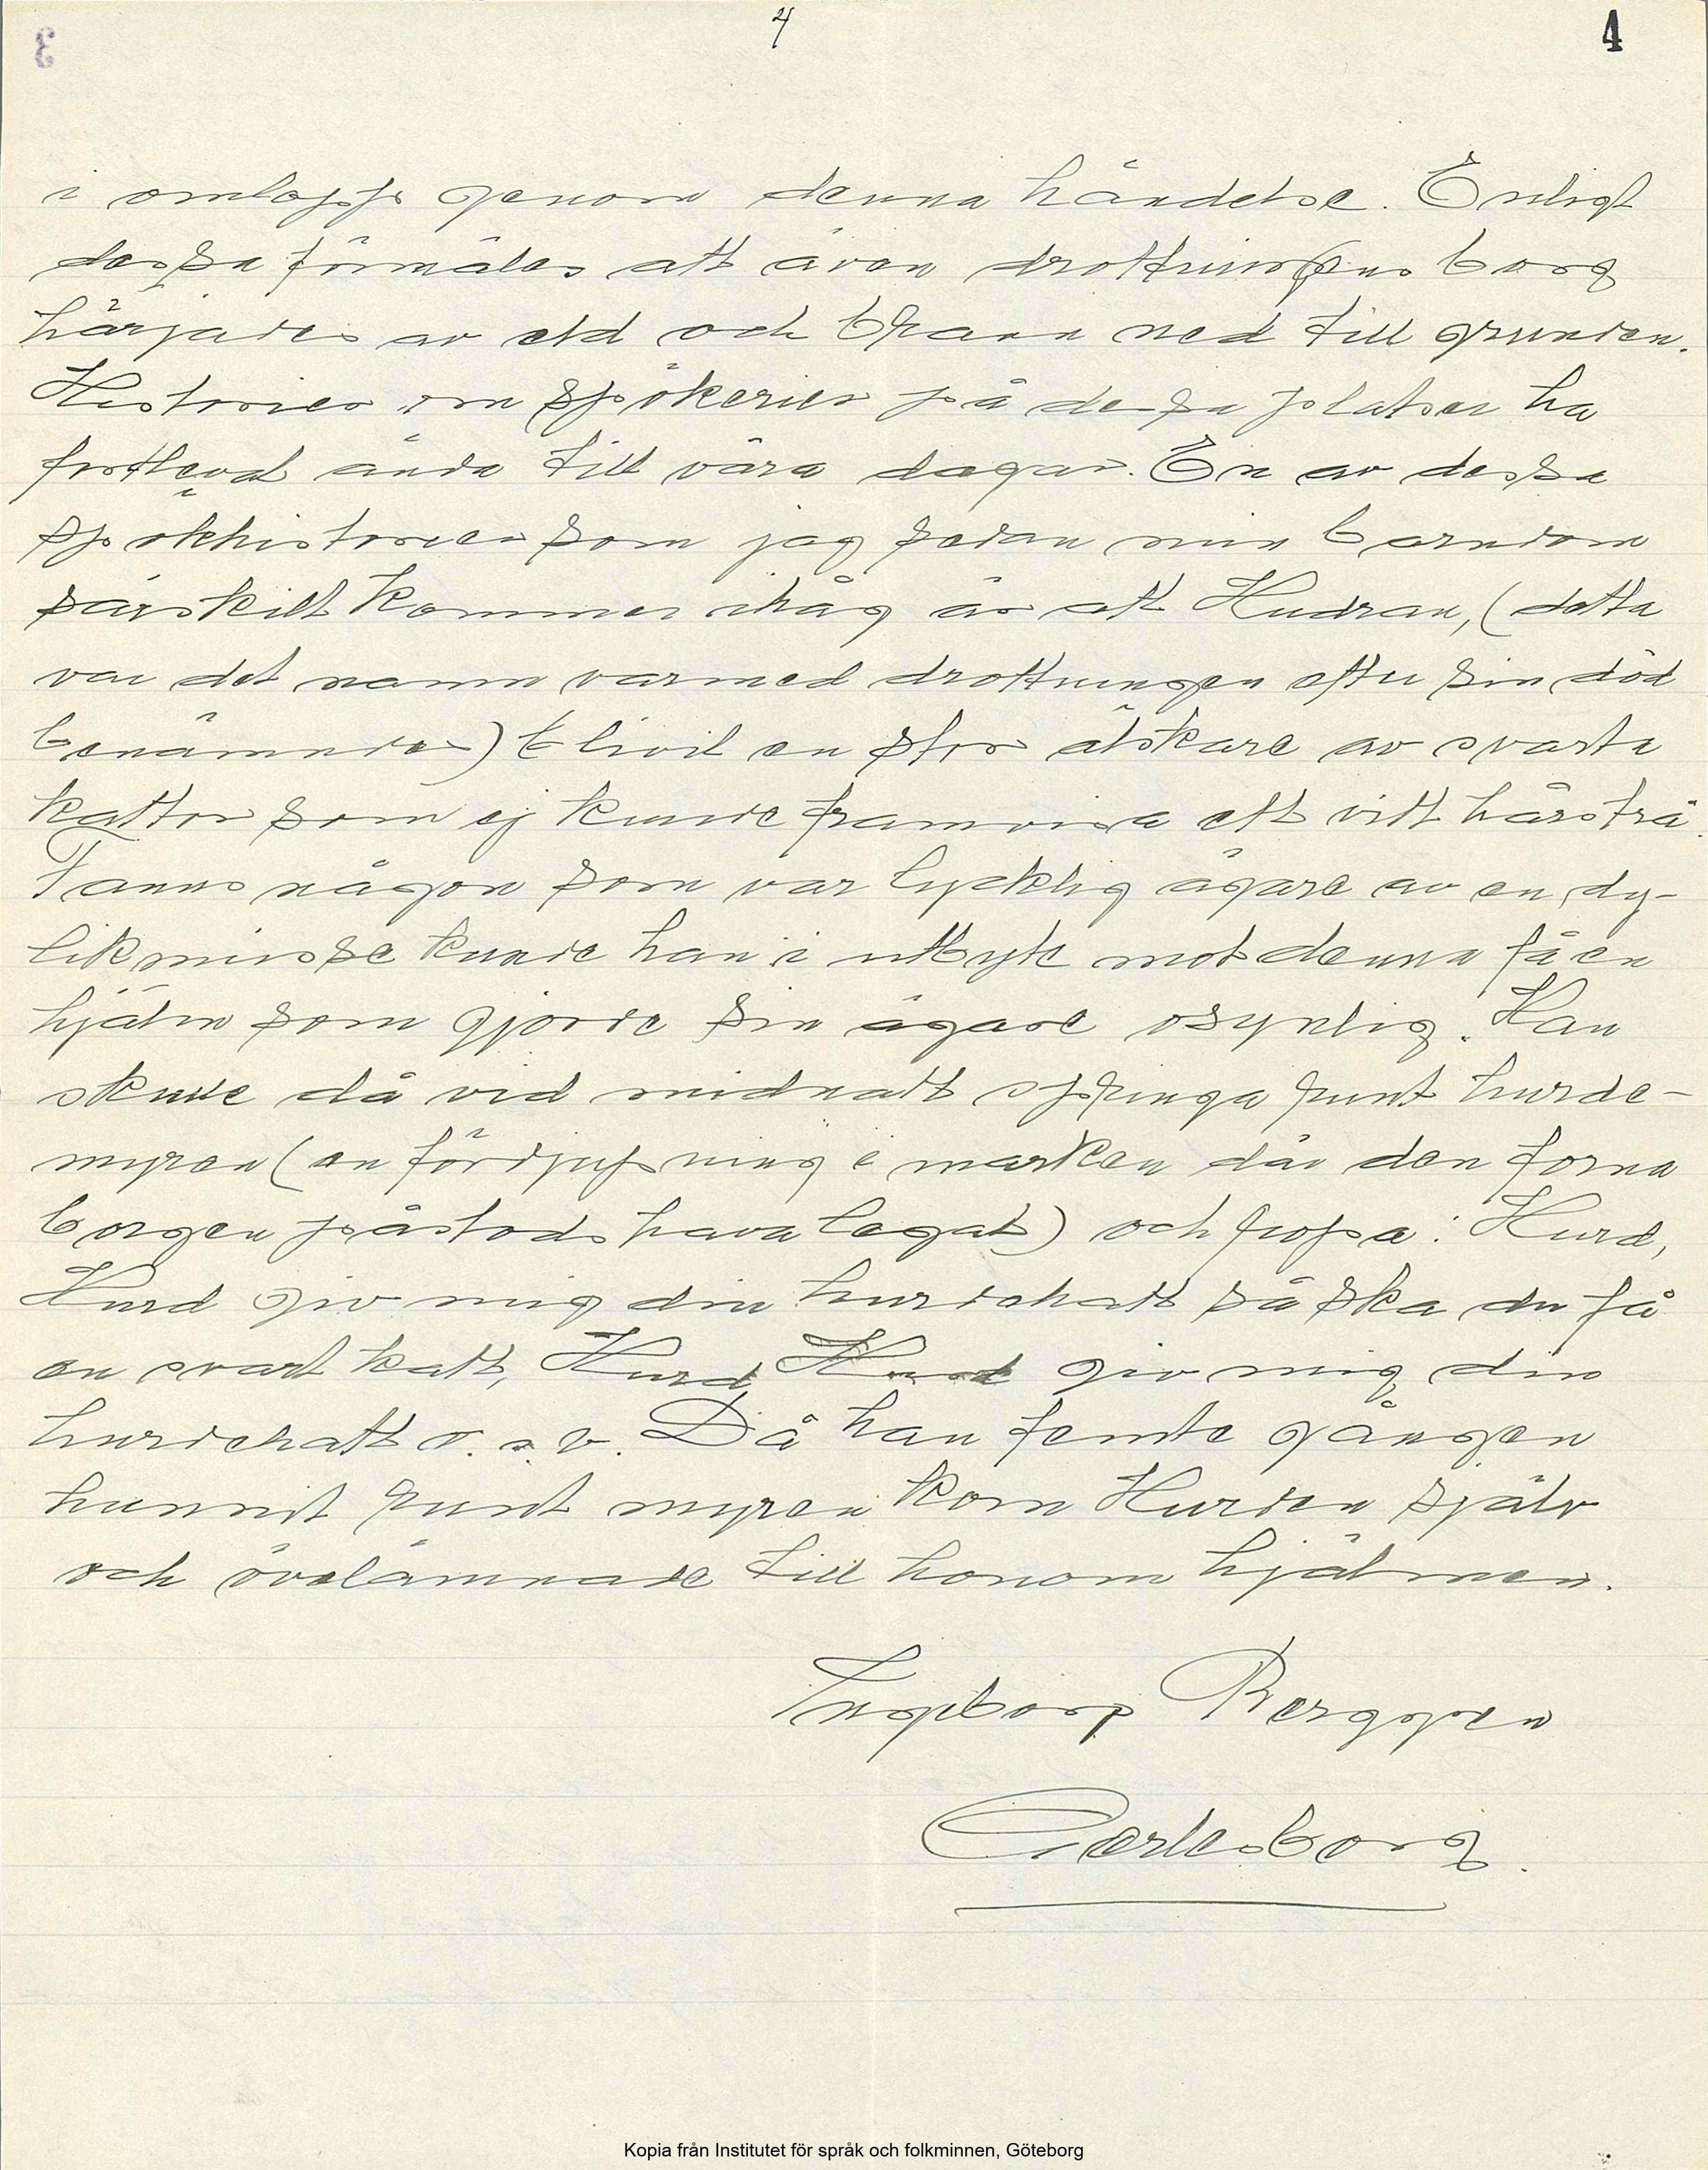 4
4
3
i omlopp genom denna händelse. Enligt
dessa förmäles att även drottningens borg
härjades av eld och brann ned till grunden.
Historier om spökerier på dessa platser ha
fortlevat ända till våra dagar. En av dessa
spökhistorier som jag sedan min barndom
särskilt kommer ihåg är att Hudran, (detta
var det namn varmed drottningen efter sin död
benämndes) blivit en stor älskare av svarta
kattor som ej kunde framvisa ett vitt hårstrå.
Fanns någon som var lycklig ägare av en dy-
lik misse kunde han i utbyte mot denna få en
hjälm som gjorde sin ägare osynlig. Han
skulle då vid midnatt springa runt hurde-
myren (en fördjupning i marken där den forna
borgen påstods hava legat) och ropa: Hurd,
Hurd giv mig din hurdehatt så ska du få
en svart katt, Hurd, Hurd giv mig din
hurdehatt o. s. v. Då han femte gången
hunnit runt myren kom Hurden själv
och överlämnade till honom hjälmen.
Ingeborg Berggren
Gerlesborg.
Kopia från Institutet för språk och folkminnen, Göteborg